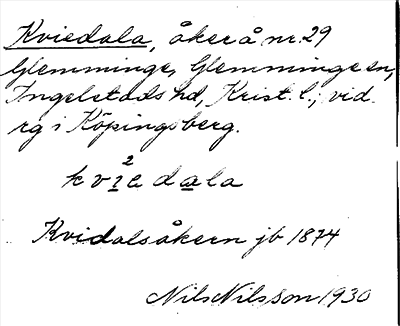 Kviedala, åker å nr. 29
Glemminge, Glemminge sn,
Ingelstads hd, Krist. l.; vid
rg i Köpingsberg.
2
kvie dala
Kvidalsåkern jb 1874
Nils Nilsson 1930